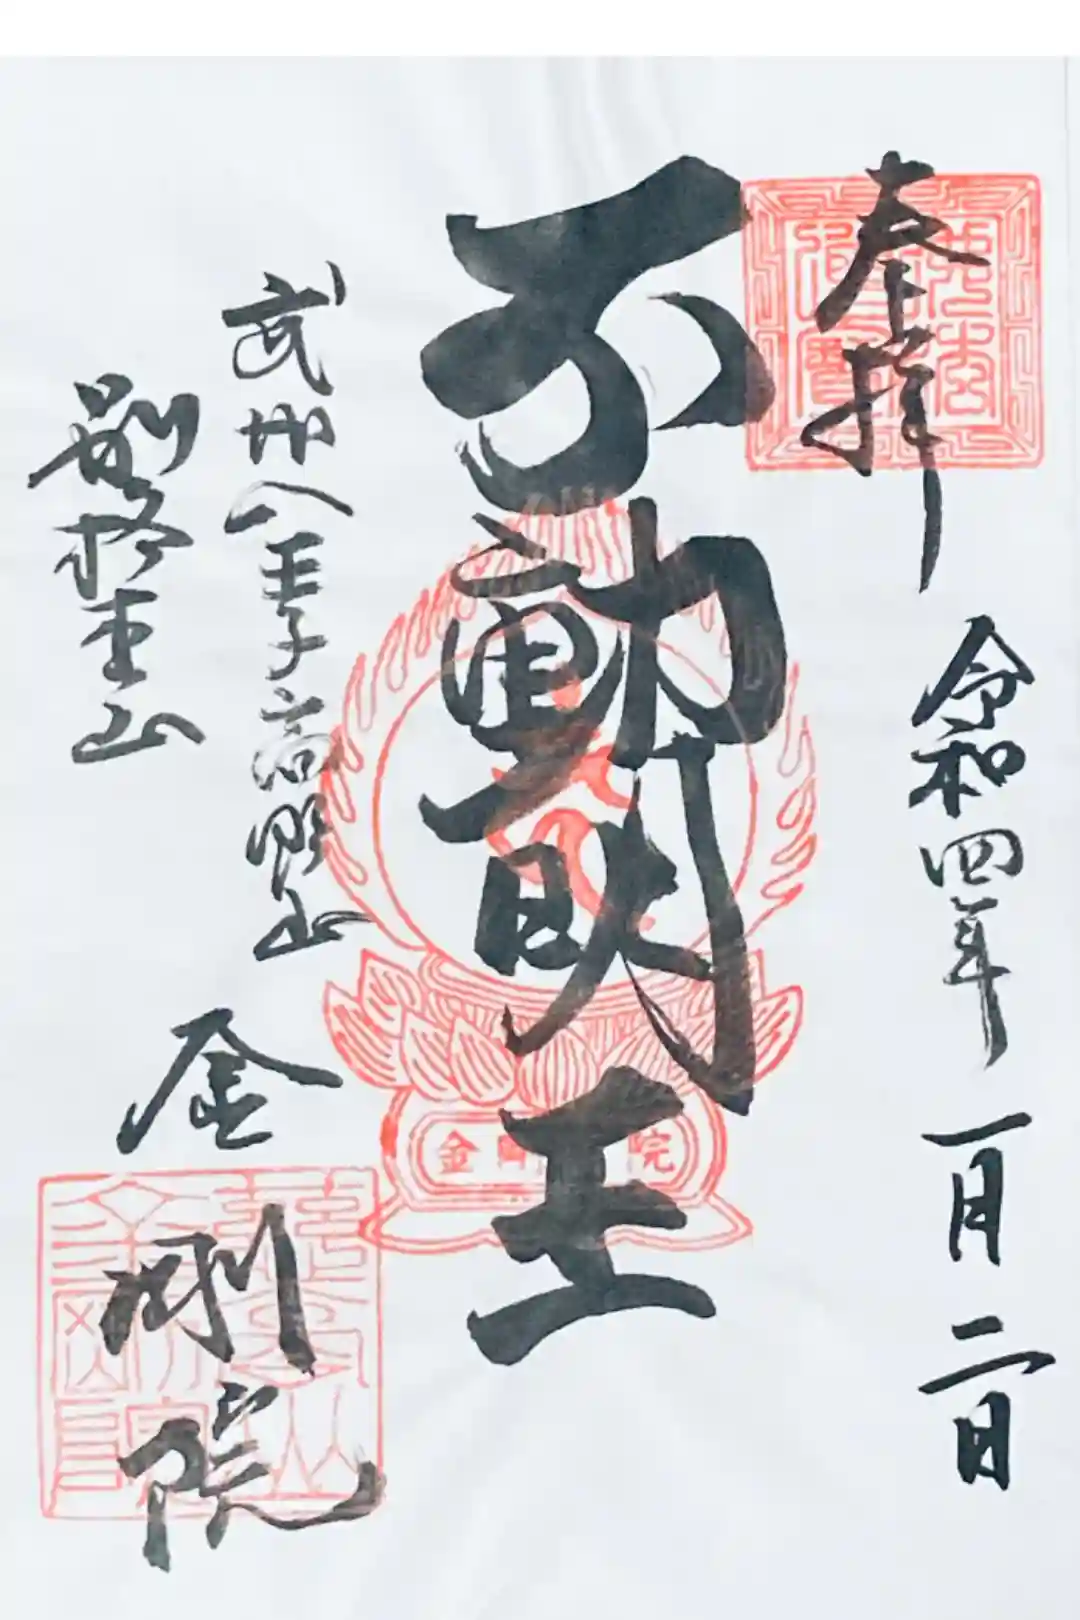 奉拝
令和四年一月二日
不動明王
武州八王子高野山
別格本山
金剛院
金剛院